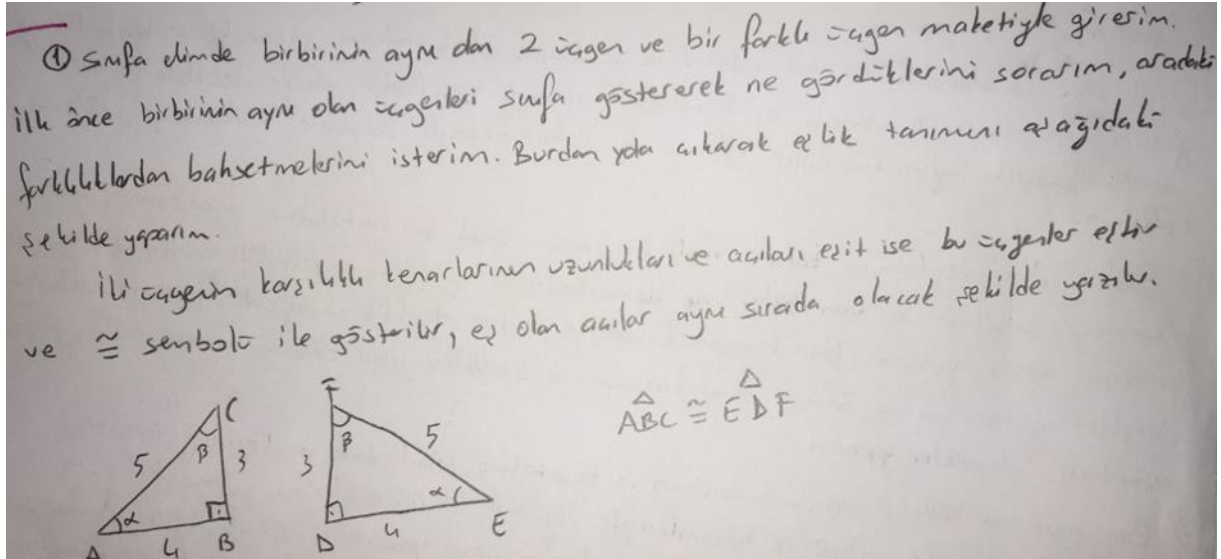 ① Sınıfa elimde birbirinin aynı olan 2 üçgen ve bir farklı üçgen maketiyle girerim.
ilk önce birbirinin aynı olan üçgenleri sınıfa göstererek ne gördüklerini sorarım, aradaki
farklılıklardan bahsetmelerini isterim. Burdan yola çıkarak eşlik tanımını aşağıdaki
şekilde yaparım.
İki üçgenin karşılıklı kenarlarının uzunlukları ve açıları eşit ise bu üçgenler eştir
ve ≅ sembolü ile gösterilir, eş olan açılar aynı sırada olacak şekilde yazılır.
C F
β 5 β 5
3 3
α α
A 4 B D 4 E
△ △
ABC ≅ EDF